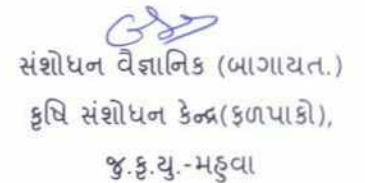 સંશોધન વૈજ્ઞાનિક (બાગાયત.)
કૃષિ સંશોધન કેન્દ્ર(ફળપાકો),
જુ.કૃ.યુ.-મહુવા